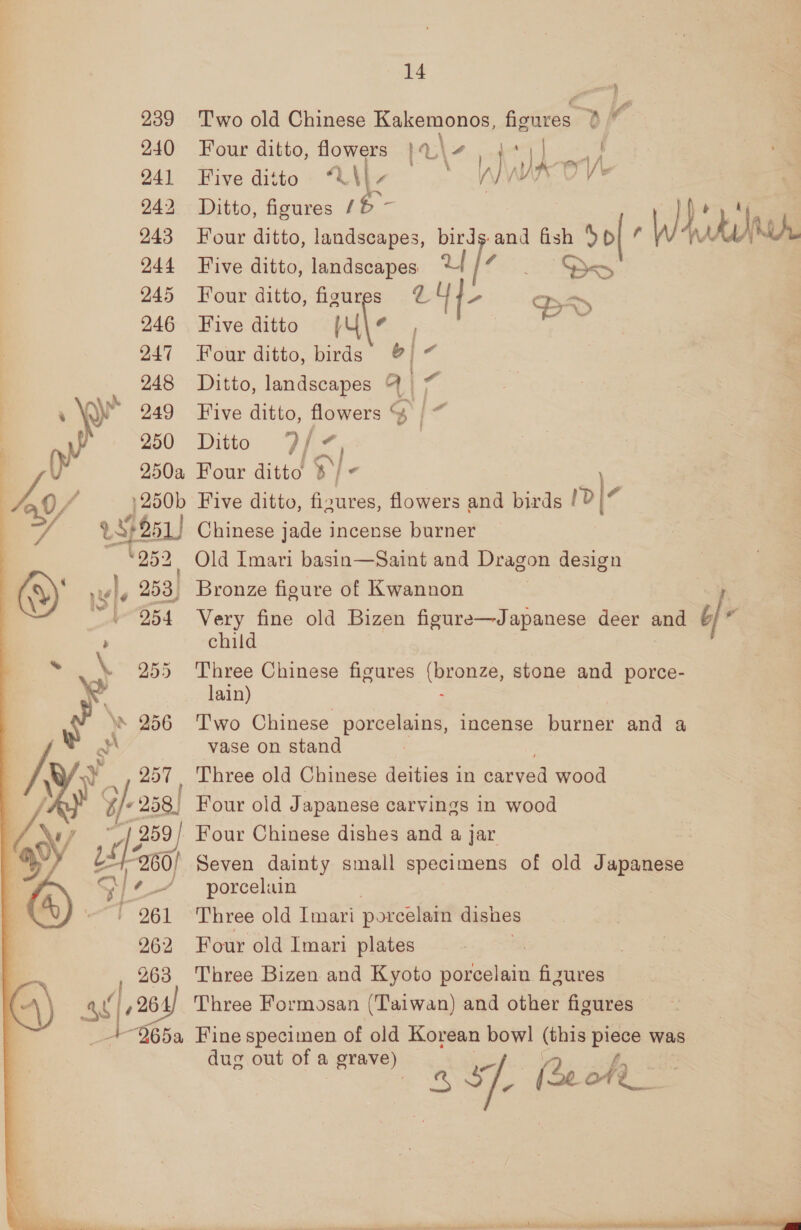 14
239 Two old Chinese Kakemonos, figures
240 Four ditto, flowers
241 Five ditto
242 Ditto, figures
243 Four ditto, landscapes, birds and fish
244 Five ditto, landscapes
245 Four ditto, figures 24/-
246 Five ditto 14/-
247 Four ditto, birds 6/-
248 Ditto, landscapes
249 Five ditto, flowers
250 Ditto 7/-
250a Four ditto 8/-
250b Five ditto, figures, flowers and birds 10/-
251 Chinese jade incense burner
252 Old Imari basin—Saint and Dragon design
253 Bronze figure of Kwannon
254 Very fine old Bizen figure—Japanese deer and 6/-
child
255 Three Chinese figures (bronze, stone and porce-
lain)
256 Two Chinese porcelains, incense burner and a
vase on stand
257 Three old Chinese deities in carved wood
258 Four old Japanese carvings in wood
259 Four Chinese dishes and a jar
260 Seven dainty small specimens of old Japanese
porcelain
261 Three old Imari porcelain dishes
262 Four old Imari plates
263 Three Bizen and Kyoto porcelain figures
264 Three Formosan (Taiwan) and other figures
265a Fine specimen of old Korean bowl (this piece was
dug out of a grave)